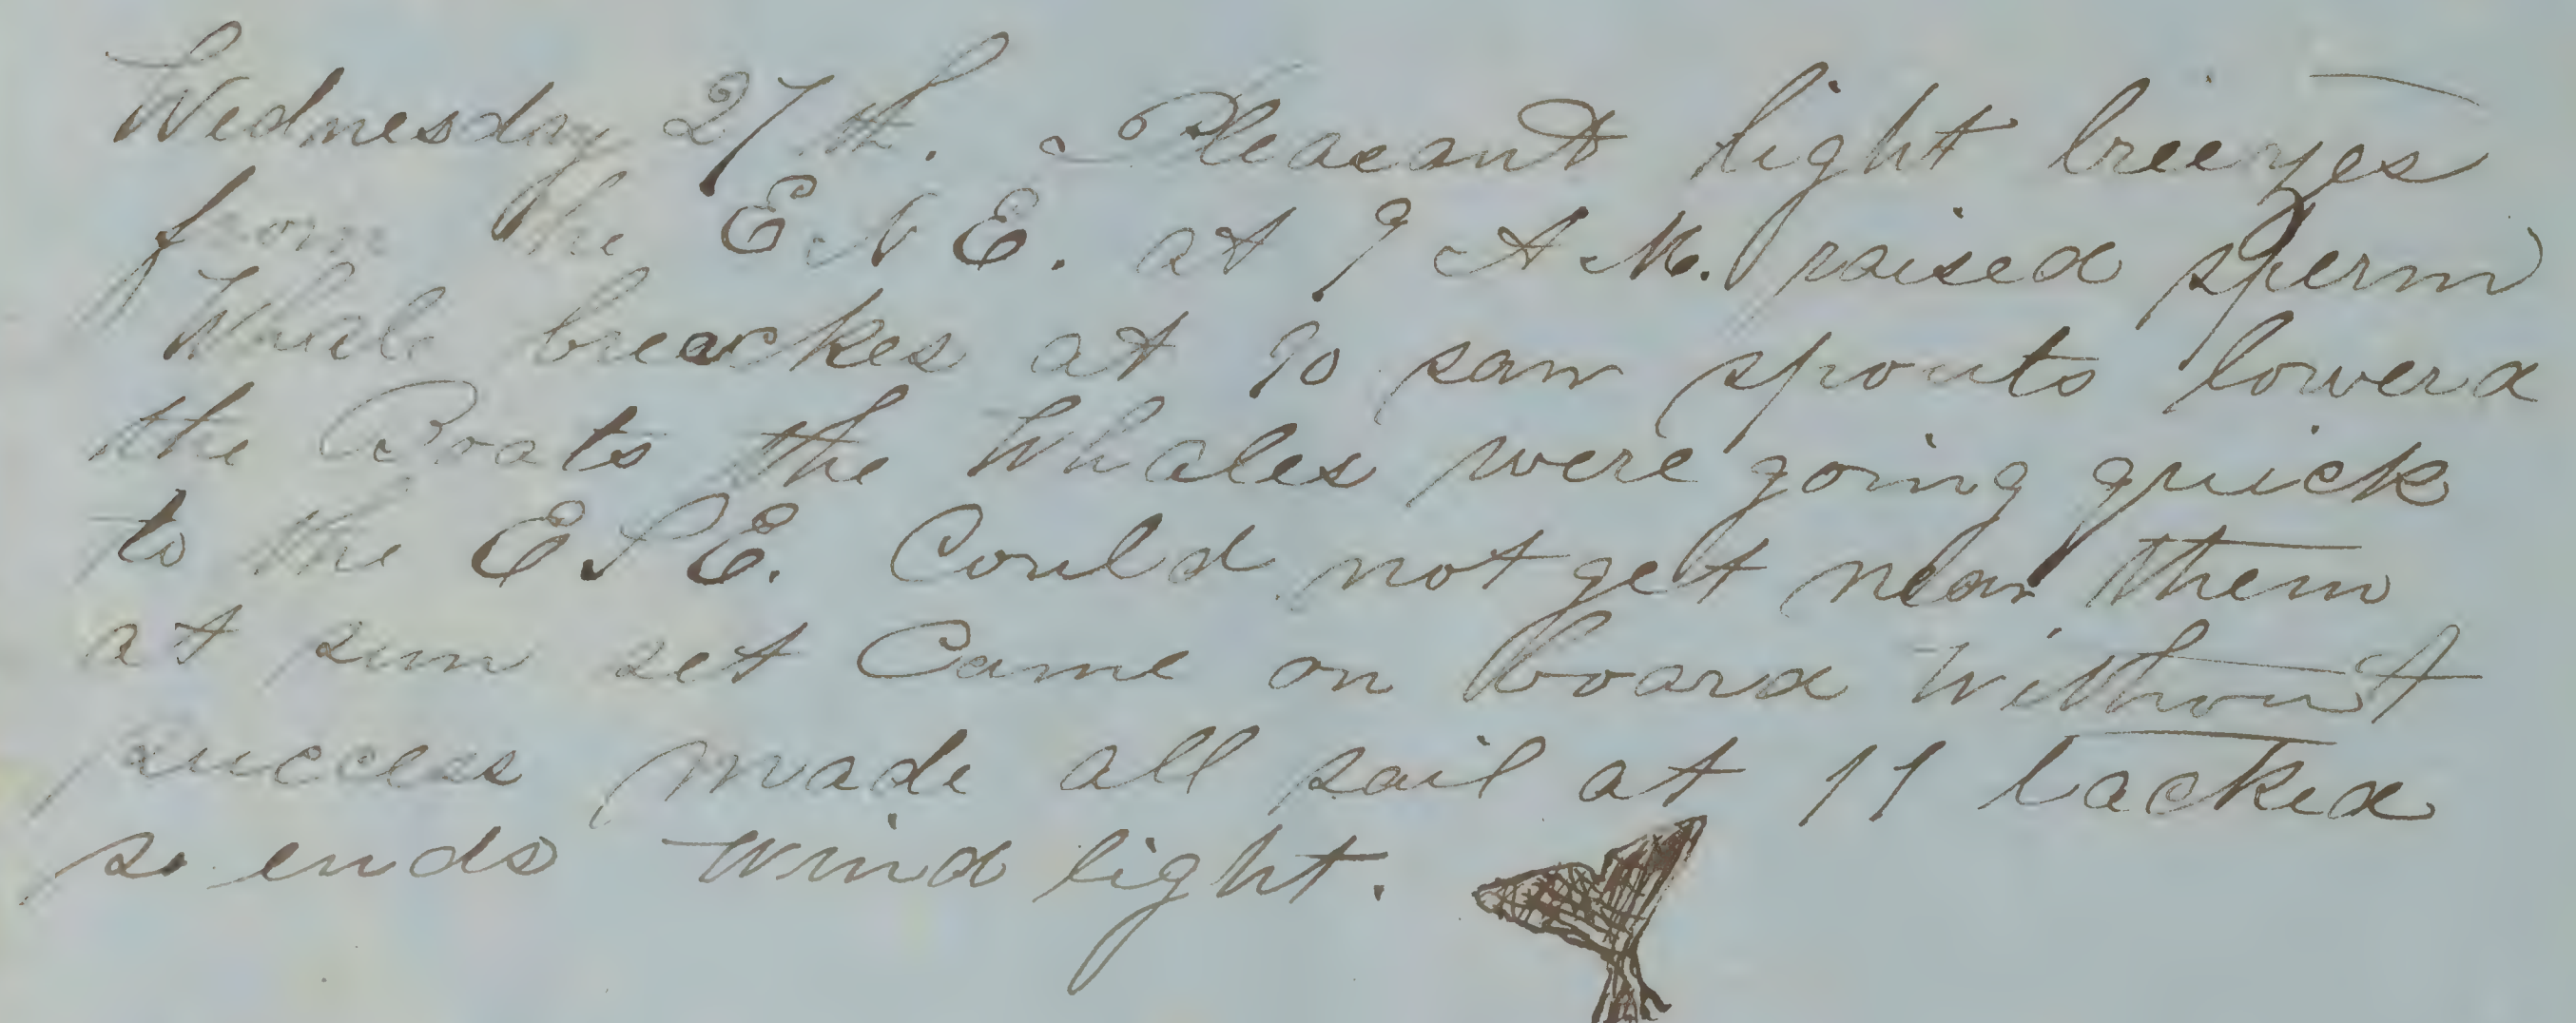 Wednesday 27th. Pleasant light breezes
from the E N E. at 9 A M. raised sperm
Whale breackes at 10 saw spouts lowerd
the Boats the Whales were going quick
to the E S E. Could not get near them
at sun set Came on board without
success made all sail at 11 tacked
so ends wind light.